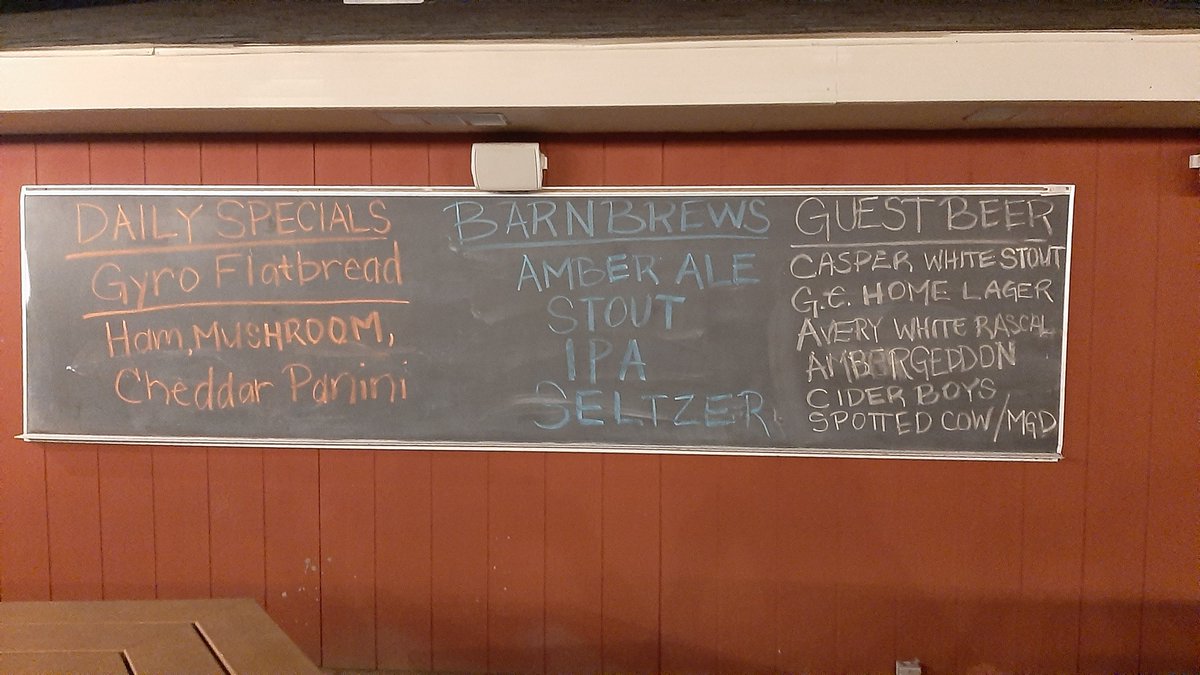 DAILY SPECIALS
Gyro Flatbread
Ham, MUSHROOM,
Cheddar Panini
BARN BREWS
AMBER ALE
STOUT
IPA
SELTZER
GUEST BEER
CASPER WHITE STOUT
G.E. HOME LAGER
AVERY WHITE RASCAL
AMBERGEDDON
CIDER BOYS
SPOTTED COW/MGD